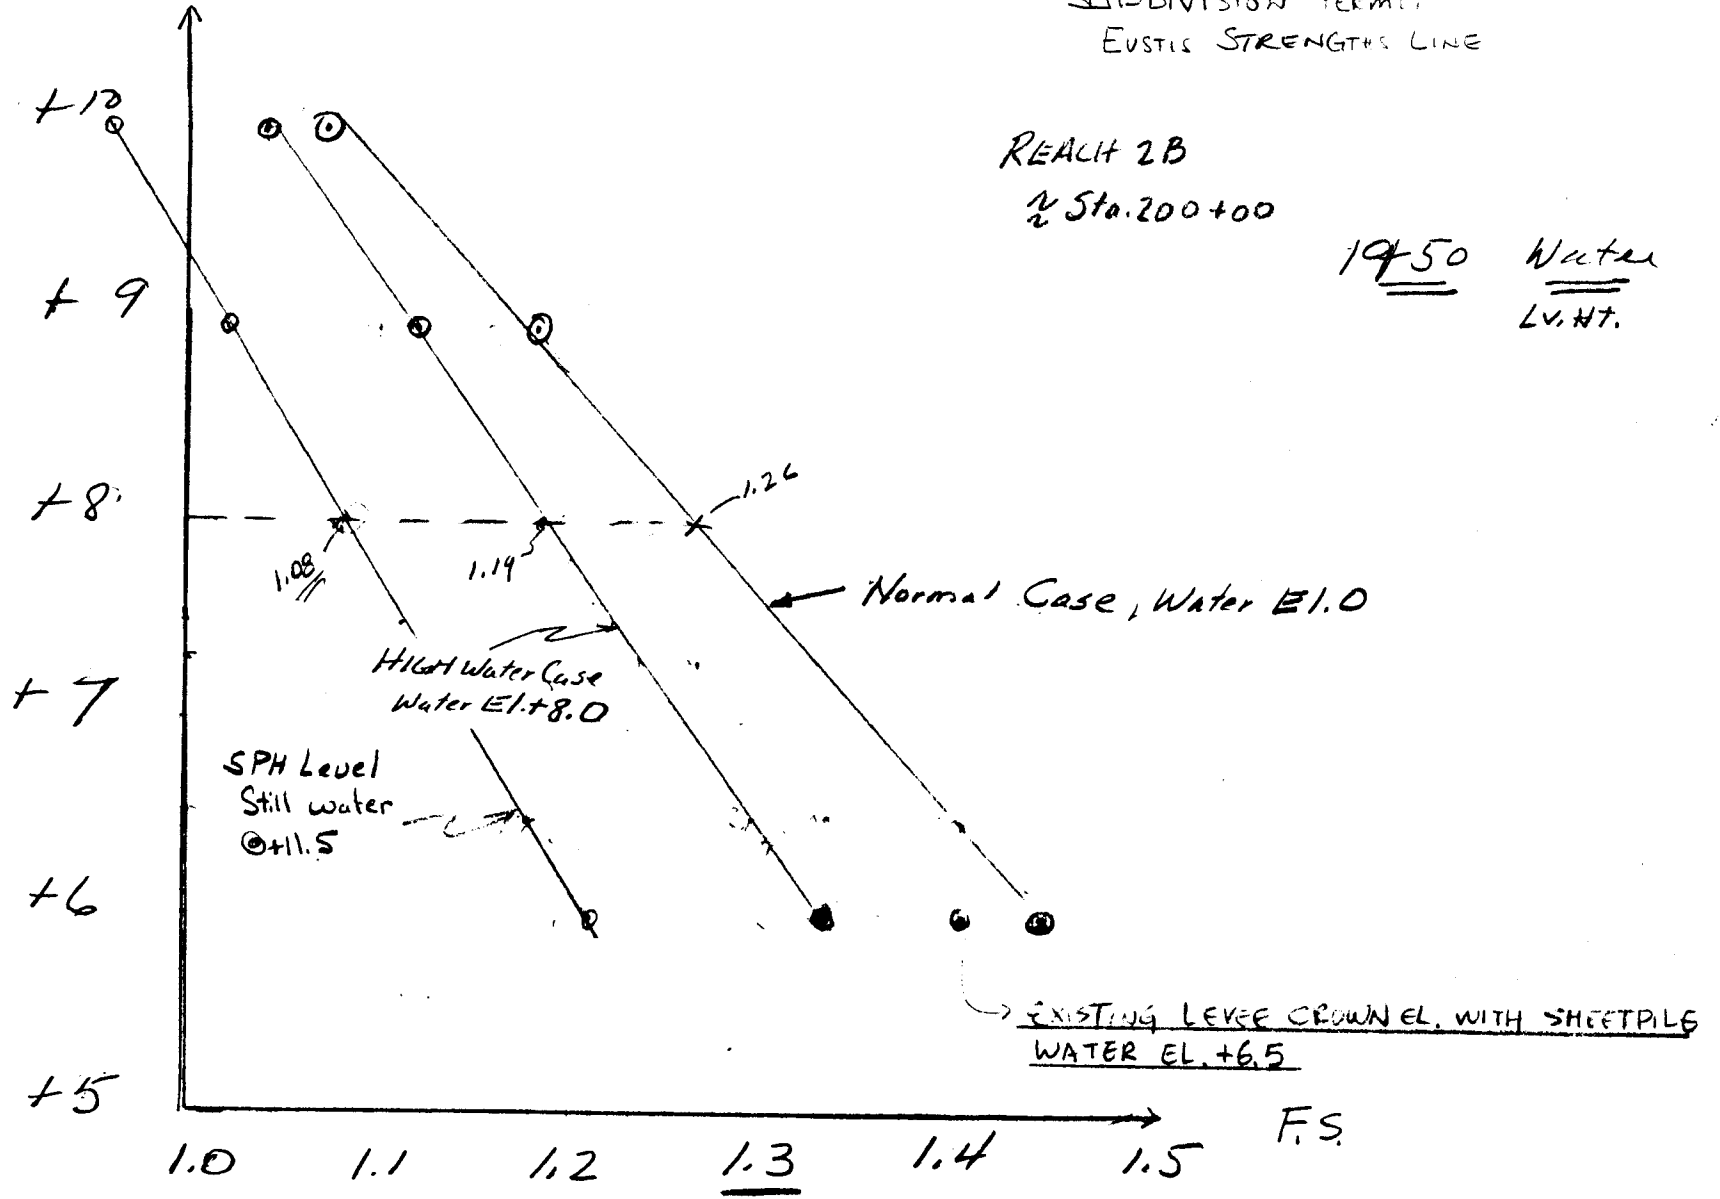 EUSTIS STRENGTHS LINE
REACH 2B
≈ Sta. 200+00
Water
Lv. Ht.
+10
+9
+8
+7
+6
+5
1.08
1.19
1.26
Normal Case, Water El.0
HIGH Water Case
Water El.+8.0
SPH Level
Still water
@+11.5
EXISTING LEVEE CROWN EL. WITH SHEETPILE
WATER EL. +6.5
1.0 1.1 1.2 1.3 1.4 1.5 F.S.